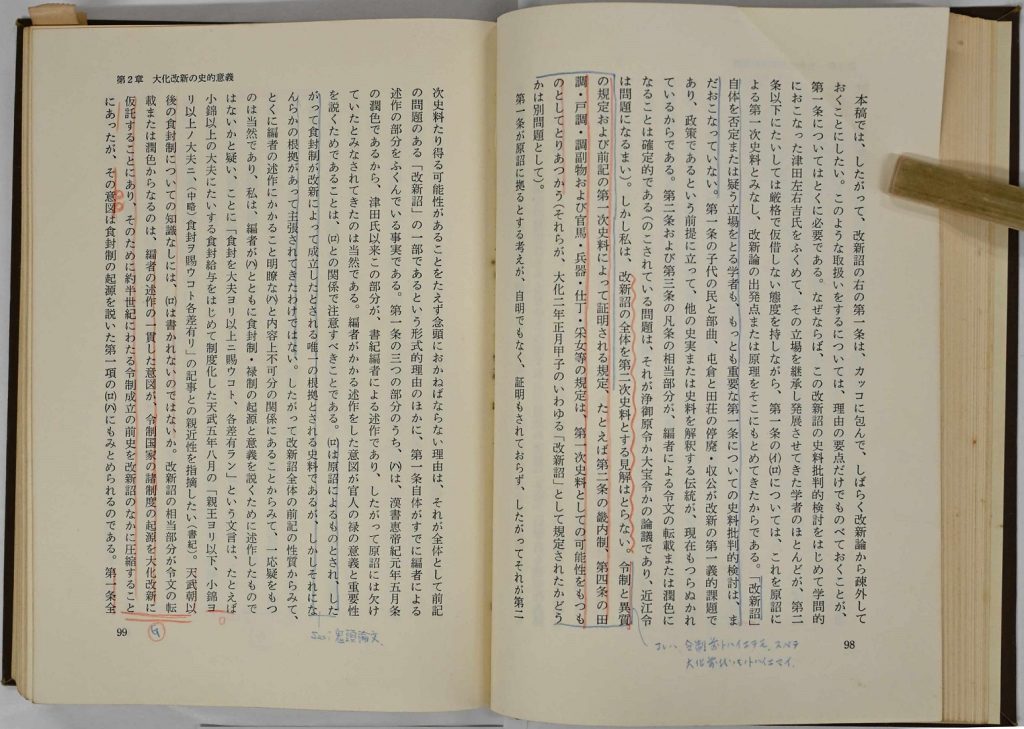 本稿では、したがって、改新詔の右の第一条は、カッコに包んで、しばらく改新論から疎外して
おくことにしたい。このような取扱いをするについては、理由の要点だけでものべておくことが、
第一条についてはとくに必要である。なぜならば、この改新詔の史料批判的検討をはじめて学問的
におこなった津田左右吉氏をふくめて、その立場を継承し発展させてきた学者のほとんどが、第二
条以下にたいしては厳格で仮借しない態度を持しながら、第一条の(イ)(ロ)については、これを原詔に
よる第一次史料とみなし、改新論の出発点または原理をそこにもとめてきたからである。「改新詔」
自体を否定または疑う立場をとる学者も、もっとも重要な第一条についての史料批判的検討は、ま
だおこなっていない。第一条の子代の民と部曲、屯倉と田荘の停廃・収公が改新の第一義的課題で
あり、政策であるという前提に立って、他の史実または史料を解釈する伝統が、現在もつらぬかれ
ているからである。第二条および第三条の凡条の相当部分が、編者による令文の転載または潤色に
なることは確定的である(のこされている問題は、それが浄御原令か大宝令かの論議であり、近江令
は問題になるまい)。しかし私は、改新詔の全体を第二次史料とする見解はとらない。令制と異質
の規定および前記の第一次史料によって証明される規定、たとえば第二条の畿内制、第四条の田
調・戸調・調副物および官馬・兵器・仕丁・采女等の規定は、第一次史料としての可能性をもつも
のとしてとりあつかう(それらが、大化二年正月甲子のいわゆる「改新詔」として規定されたかどう
かは別問題として)。
第一条が原詔に拠るとする考えが、自明でもなく、証明もされておらず、したがってそれが第二
98
コレハ、令制等トハイエテモ、スベテ
第2章 大化改新の史的意義
次史料たり得る可能性があることをたえず念頭におかねばならない理由は、それが全体として前記
の問題のある「改新詔」の一部であるという形式的理由のほかに、第一条自体がすでに編者による
述作の部分をふくんでいる事実である。第一条の三つの部分のうち、(ハ)は、漢書恵帝紀元年五月条
の潤色であるから、津田氏以来この部分が、書紀編者による述作であり、したがって原詔には欠け
ていたとみなされてきたのは当然である。編者がかかる述作をした意図が官人の禄の意義と重要性
を説くためであることは、(ロ)との関係で注意すべきことである。(ロ)は原詔によるものとされ、した
がって食封制が改新によって成立したとされる唯一の根拠とされる史料であるが、しかしそれにな
んらかの根拠があって主張されてきたわけではない。したがって改新詔全体の前記の性質からみて、
とくに編者の述作にかかること明瞭な(ハ)と内容上不可分の関係にあることからみて、一応疑をもつ
のは当然であり、私は、編者が(ハ)とともに食封制・禄制の起源と意義を説くために述作したもので
はないかと疑い、ことに「食封を大夫ヨリ以上ニ賜ウコト、各差有ラン」という文言は、たとえば
小錦以上の大夫にたいする食封給与をはじめて制度化した天武五年八月の「親王ヨリ以下、小錦ヨ
リ以上ノ大夫ニ、(中略)食封ヲ賜ウコト各差有リ」の記事との親近性を指摘したい(書紀)。天武朝以
後の食封制についての知識なしには、(ロ)は書かれないのではないか。改新詔の相当部分が令文の転
載または潤色からなるのは、編者の述作の一貫した意図が、令制国家の諸制度の起源を大化改新に
仮託することにあり、そのために約半世紀にわたる令制成立の前史を改新詔のなかに圧縮すること
にあったが、その意図は食封制の起源を説いた第一項の(ロ)(ハ)にもみとめられるのである。第一条全
99